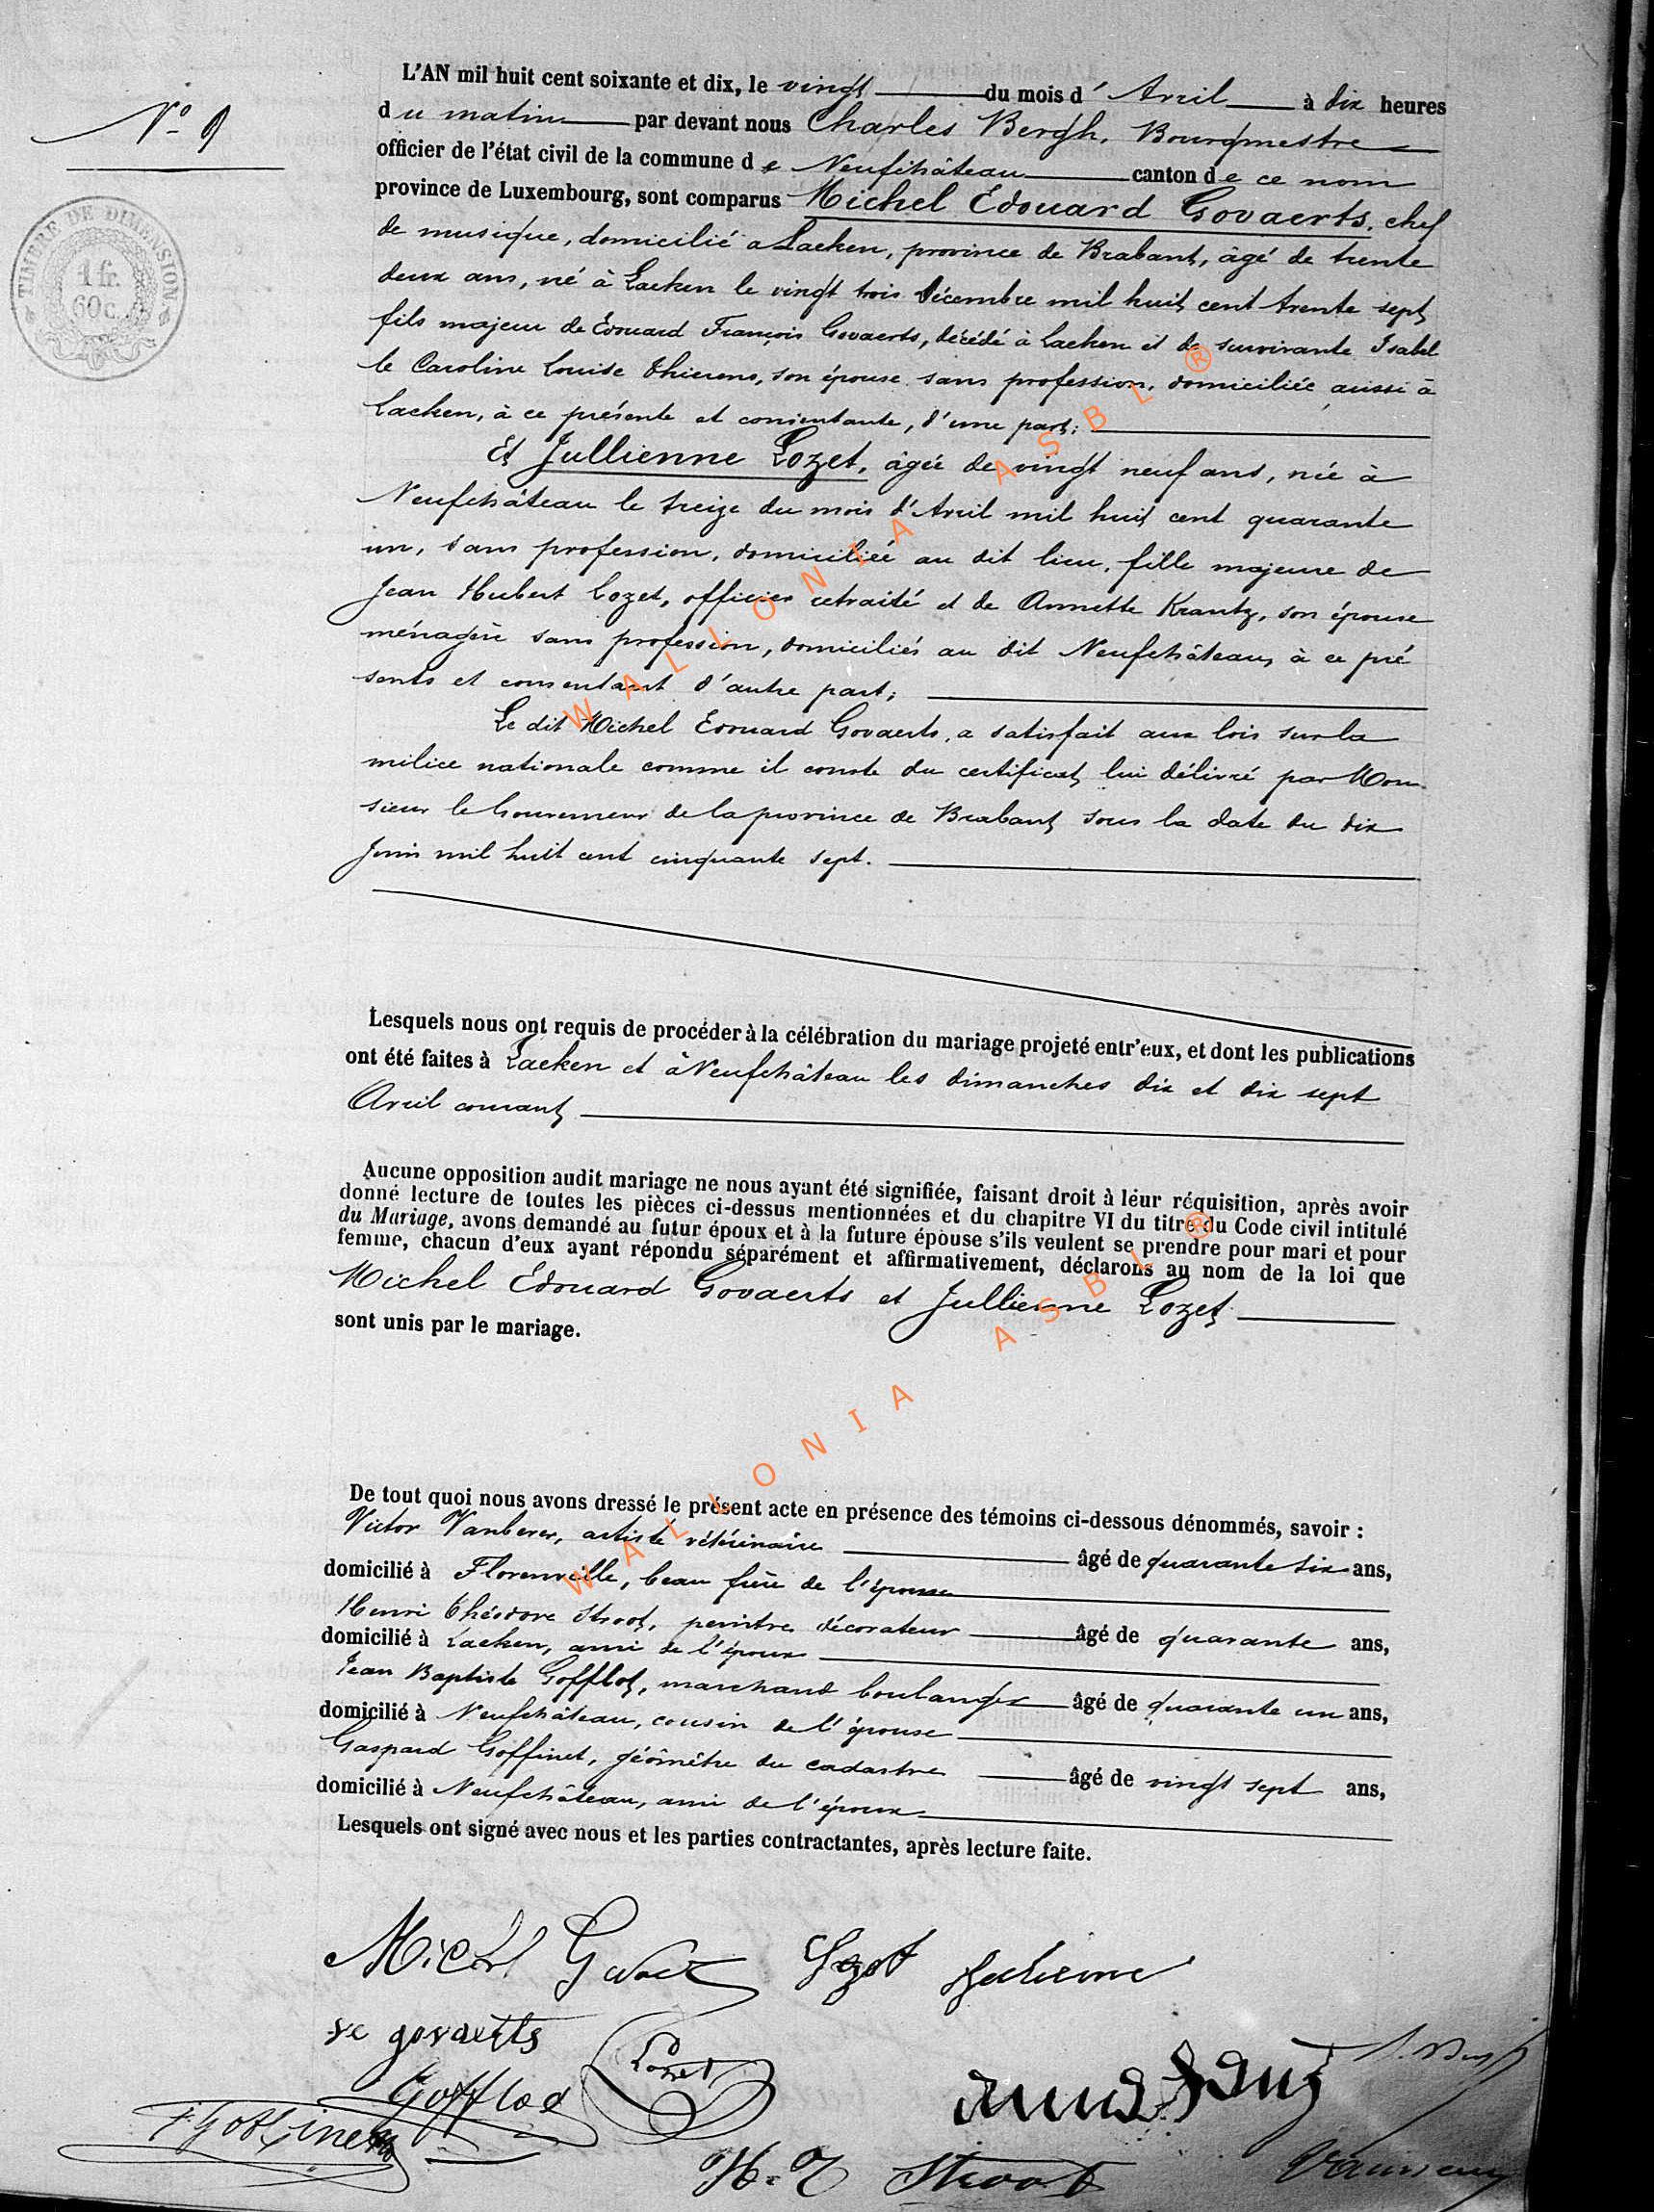 N° 9
TIMBRE DE DIMENSION
1 fr.
60 c.
L'AN mil huit cent soixante et dix, le vingt du mois d' Avril à dix heures
du matin par devant nous Charles Bergh, Bourgmestre
officier de l'état civil de la commune de Neufchâteau canton de ce nom
province de Luxembourg, sont comparus Michel Edouard Govaerts, chef
de musique, domicilié a Laeken, province de Brabant, âgé de trente
deux ans, né à Laeken le vingt trois Décembre mil huit cent trente sept
fils majeur de Edouard François Govaerts, décédé à Laeken et de survivante Isabel
le Caroline Louise Thierens, son épouse sans profession, domiciliée aussi à
Laeken, à ce présente et consentante, d'une part;
Et Jullienne Lozet, âgée de vingt neuf ans, née à
Neufchâteau le treize du mois d'Avril mil huit cent quarante
un, sans profession, domiciliée au dit lieu, fille majeure de
Jean Hubert Lozet, officier retraité et de Annette Krantz, son épouse
ménagère sans profession, domiciliés au dit Neufchâteau, à ce pré
sents et consentant d'autre part;
Le dit Michel Edouard Govaerts, a satisfait aux lois sur la
milice nationale comme il conste du certificat lui délivré par Mon-
sieur le Gouverneur de la province de Brabant sous la date du dix
Juin mil huit cent cinquante sept.
Lesquels nous ont requis de procéder à la célébration du mariage projeté entr'eux, et dont les publications
ont été faites à Laeken et à Neufchâteau les dimanches dix et dix sept
Avril courant
Aucune opposition audit mariage ne nous ayant été signifiée, faisant droit à leur réquisition, après avoir
donné lecture de toutes les pièces ci-dessus mentionnées et du chapitre VI du titre du Code civil intitulé
du Mariage, avons demandé au futur époux et à la future épouse s'ils veulent se prendre pour mari et pour
femme, chacun d'eux ayant répondu séparément et affirmativement, déclarons au nom de la loi que
Michel Edouard Govaerts et Jullienne Lozet
sont unis par le mariage.
De tout quoi nous avons dressé le présent acte en présence des témoins ci-dessous dénommés, savoir :
Victor Vanberer, artiste vétérinaire âgé de quarante six ans,
domicilié à Florenville, beau frère de l'épouse
Henri Théodore Stroot, peintre décorateur âgé de quarante ans,
domicilié à Laeken, ami de l'époux
Jean Baptiste Gofflot, marchand boulanger âgé de quarante un ans,
domicilié à Neufchâteau, cousin de l'épouse
Gaspard Goffinet, géomètre du cadastre âgé de vingt sept ans,
domicilié à Neufchâteau, ami de l'époux
Lesquels ont signé avec nous et les parties contractantes, après lecture faite.
Lozet Julienne
ve govaerts
Lozet
Gofflot
Goffinet
H. T. Stroot
WALLONIA ASBL ®
WALLONIA ASBL ®